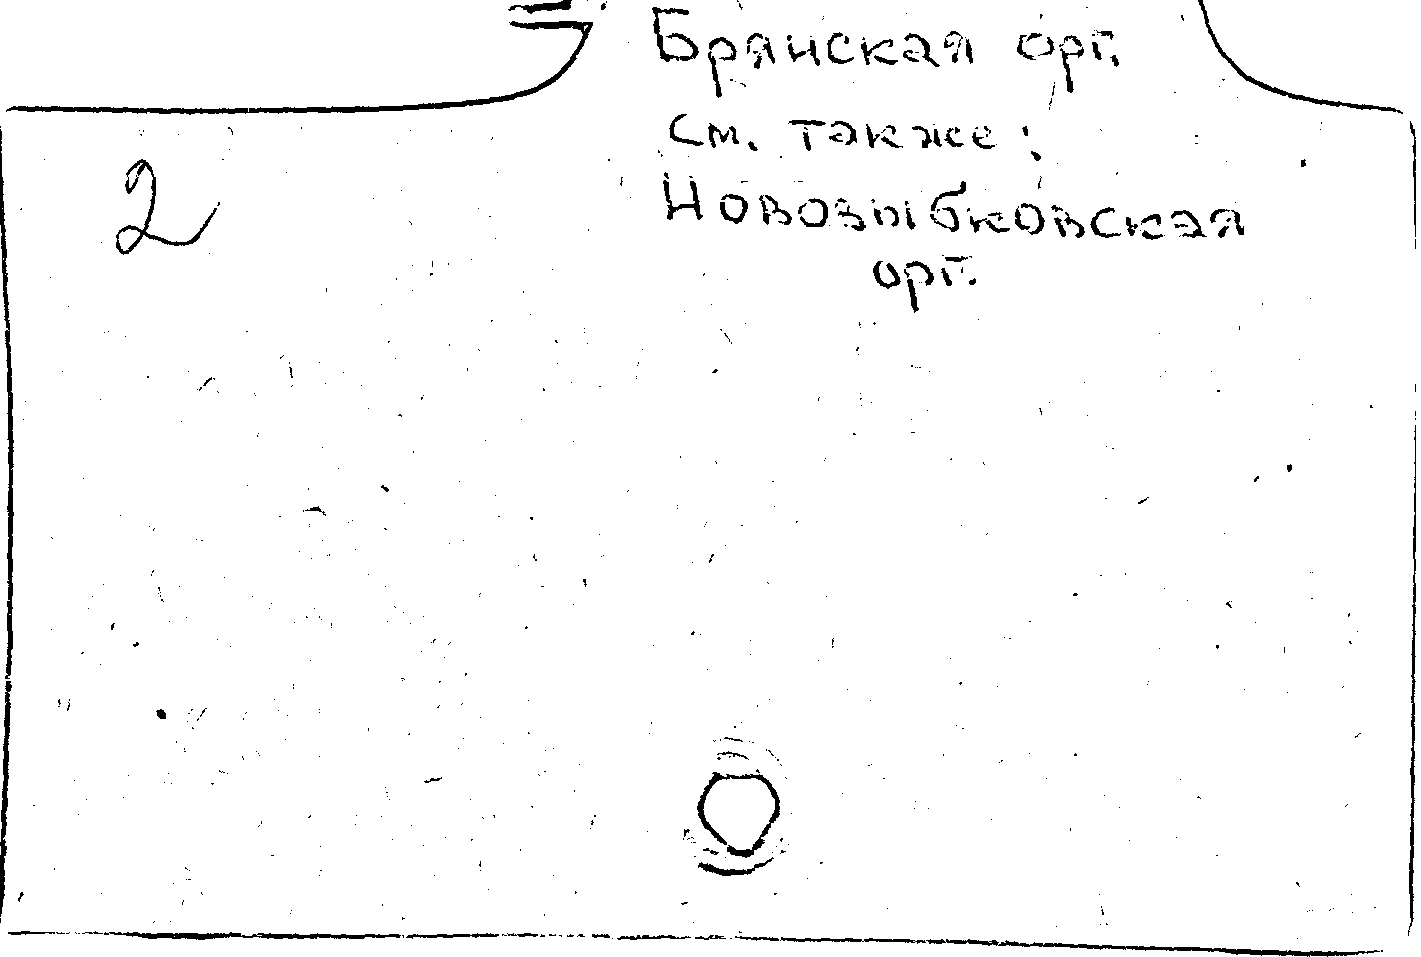 Брянская орг.
См. также:
Новозыбковская
орг.
2